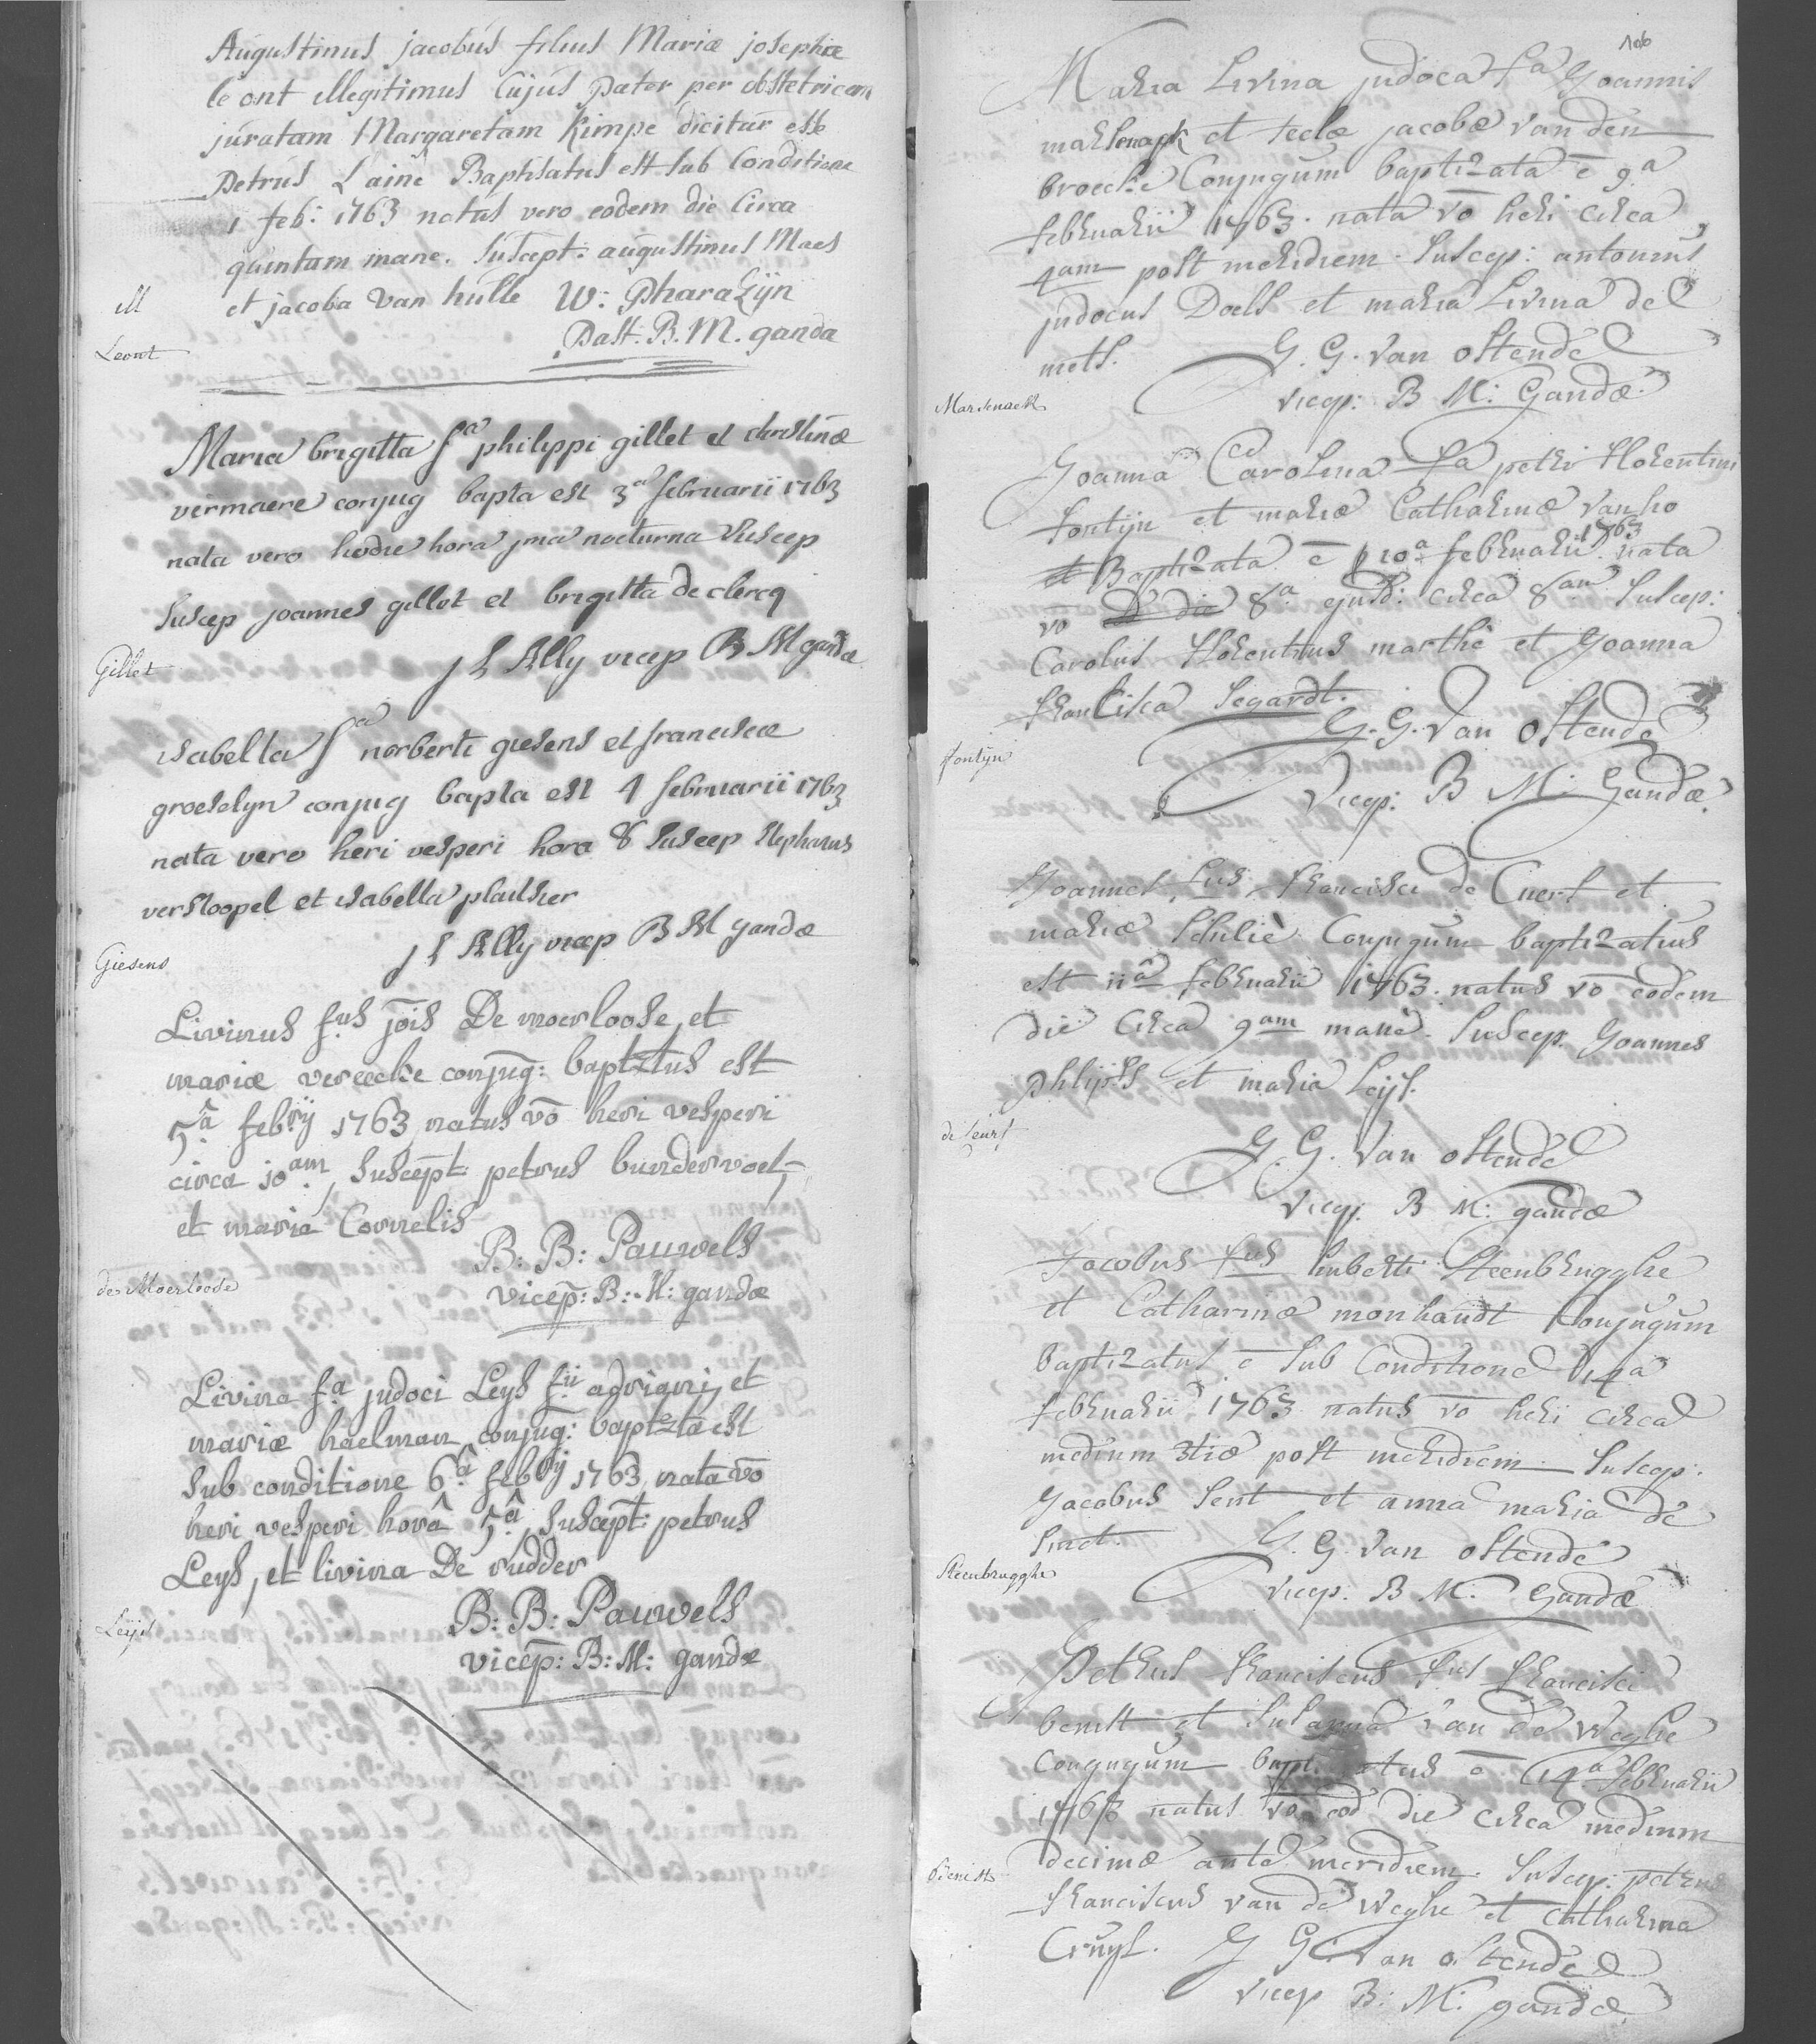 Augustinus jacobus filius Mariæ josephæ
le ont illegitimus Cujus Pater per obstetricem
juratam Margaretam Kimpe dicitur esse
Petrus Lainé Baptisatus est sub Conditione
1 feb: 1763 natus vero eodem die Circa
quintam mane. Suscept: augustinus Maes
et jacoba Van hulle W: Pharazijn
Past: B. M. ganda
ill
Leont
Maria brigitta fa philippi gillet et christinæ
vermaere conjug bapta est 3a februarii 1763
nata vero hodie hora nocturna
Suscep joannes gillet et brigitta de clercq
J L Ally vicep B M gandæ
Gillet
isabella fa norberti giesens et franciscæ
groeselyn conjug bapta est 4 februarii 1763
nata vero heri vesperi hora 8 Suscep Stephanus
verstoopel et isabella
J L Ally vicep B M gandæ
Giesens
Livinus f.us jois De moerloose, et
mariæ vereecke conjug: baptztus est
5a feb.ij 1763, natus vo heri vesperi
circa 10am, Suscept: petrus bundervoet,
et maria Cornelis
B: B: Pauwels
vicep: B: M: gandæ
de Moerloose
Livina f.a judoci Leys f.ii adriani, et
mariæ haelman, conjug: baptzta est
Sub conditione 6a feb.ij 1763, nata vo
heri vesperi horâ 5â, Suscept: petrus
Leys, et livina De rudder
B: B: Pauwels
vicep: B: M: gandæ
Leys
106
Maria Livina judoca fa Joannis
marsenack et teclæ jacobæ van den
broecke Conjugum baptizata ē 9a
februarii 1763. nata vō heri circa
4am post meridiem. Suscep: antonius
judocus Doels et maria Livina de
mets. G. G. Van Ostende
vicep: B M: Gandæ
Marsenack
Joanna Carolina fa petri florentini
fontijn et mariæ Catharinæ van ho
et Baptizata ē 10a februarii 1763 nata
vo die 8a ejusd: circa 8am Suscep:
Carolus florentinus marthe et Joanna
francisca Segardt.
G. G. Van Ostende
Vicep: B M: Gandæ
fontijn
Joannes fus francisci de Cuers et
mariæ Schulie Conjugum baptizatus
est 11a februarii 1763. natus vo eodem
die circa 9am mane. Suscep. Joannes
phlijps et maria Leys.
G. G. Van Ostende
vicep. B M: gandæ
Jacobus fus huberti Steenbrugghe
et Catharinæ monhaudt Conjugum
baptizatus ē sub Conditione 14a
februarii 1763 natus vo heri circa
medium 3tiæ post meridiem. Suscep:
Jacobus Sent et anna maria de
Smet. G. G. Van Ostende
vicep. B M: Gandæ
Steenbrugghe
Petrus franciscus fus francisci
benist et Susannæ Van de Weghe
Conjugum ē 14a februarii
1763 natus vo eod die circa medium
decimæ ante meridiem. Suscep: petrus
franciscus van de Weghe et Catharina
Cruys. G G Van Ostende
vicep B: M: gandæ
Benist